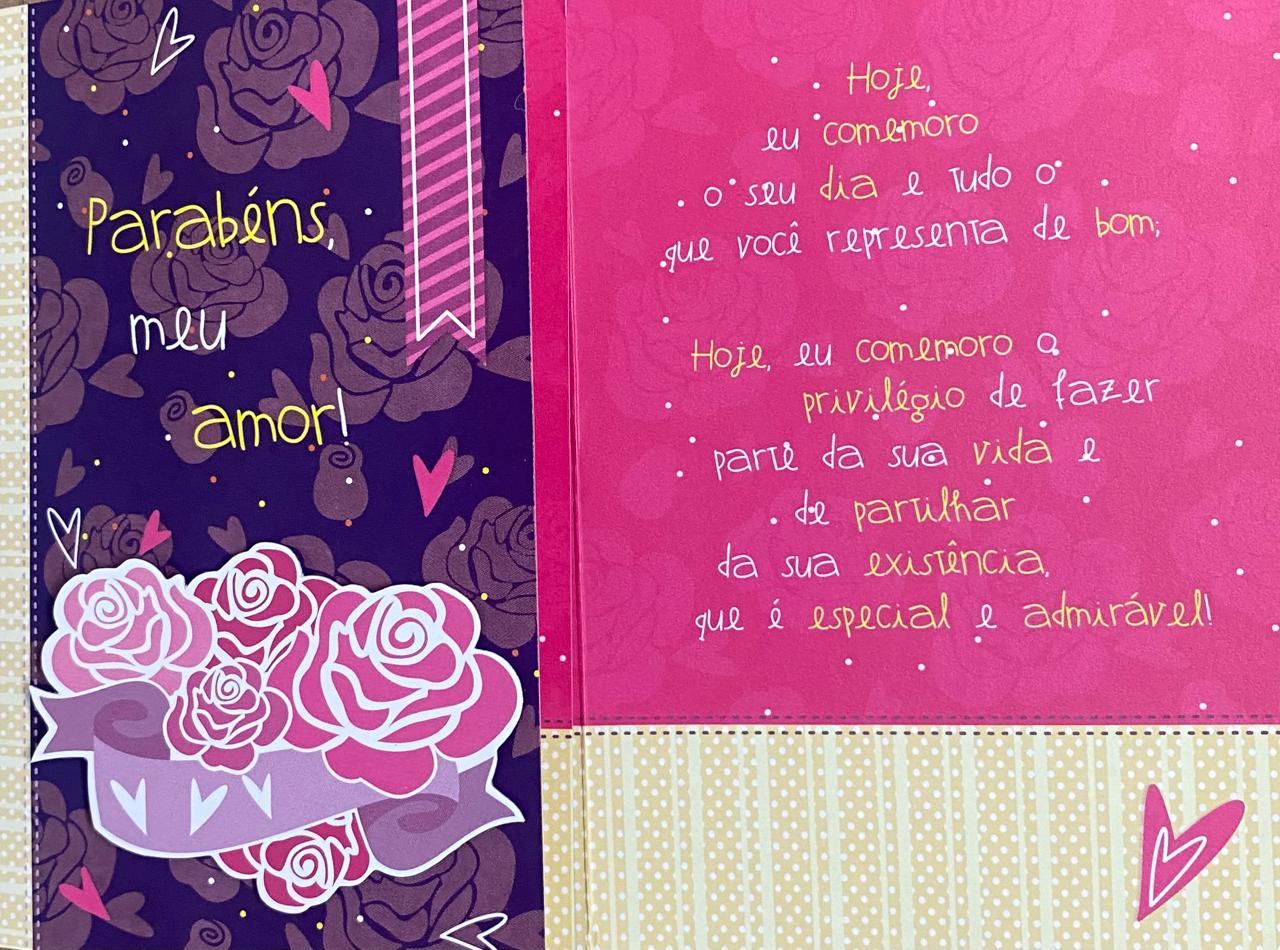 Parabéns,
meu
amor!
Hoje,
eu comemoro
o seu dia e tudo o
que você representa de bom;
Hoje, eu comemoro o
privilégio de fazer
parte da sua vida e
de partilhar
da sua existência,
que é especial e admirável!